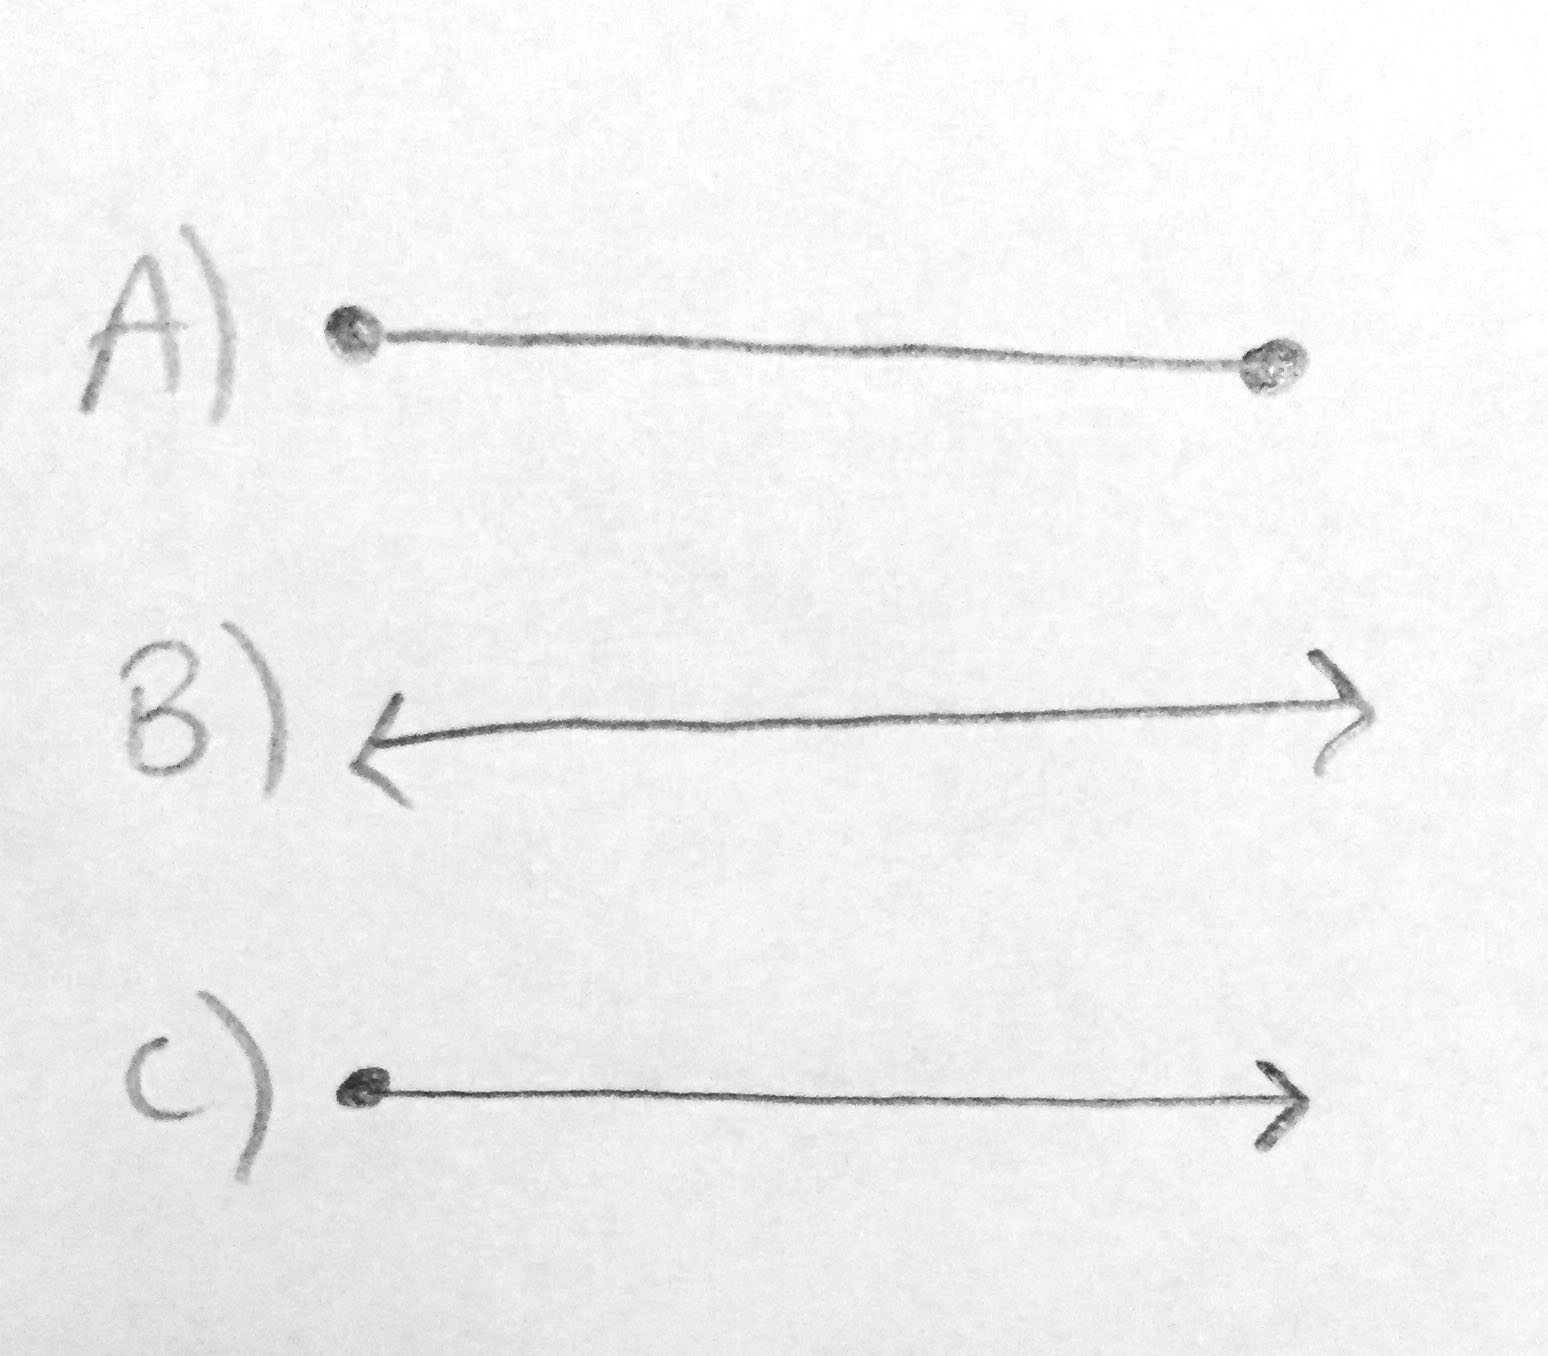 A)
B)
C)